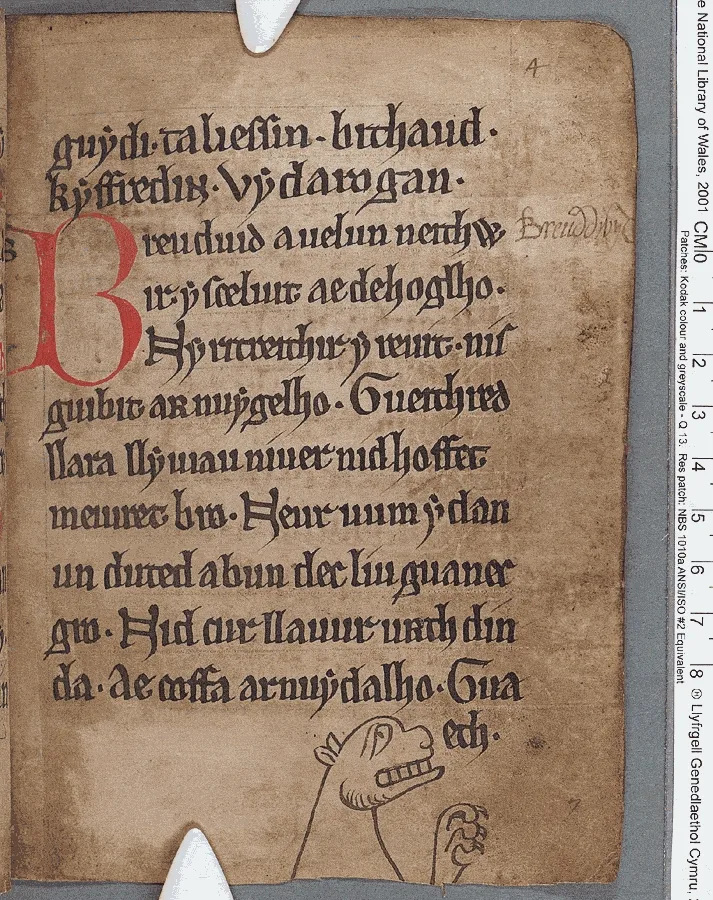 4
guẏdi·taliessin·bithaud·
kẏffredin·vẏdarogan·
Breuduid auelun neithw
ir·ẏ sceluit ae dehoglho·
Nẏ ritreithir ẏ reuit·nis
guibit ar nuẏgelho·Gueithred
llara llẏuiau niuer nid hoffet
meiuret bro·Neur uum ẏ dan
un duted a bun dec liu guanec
gro·Nid cur llauur urth din
da·Ae coffa ar nuẏdalho·Gua
ech·
Breuddwyd
e National Library of Wales, 2001 CM 0 1 2 3 4 5 6 7 8 ® Llyfrgell Genedlaethol Cymru,
Patches: Kodak colour and greyscale - Q 13. Res patch: NBS 1010a ANSI/ISO #2 Equivalent